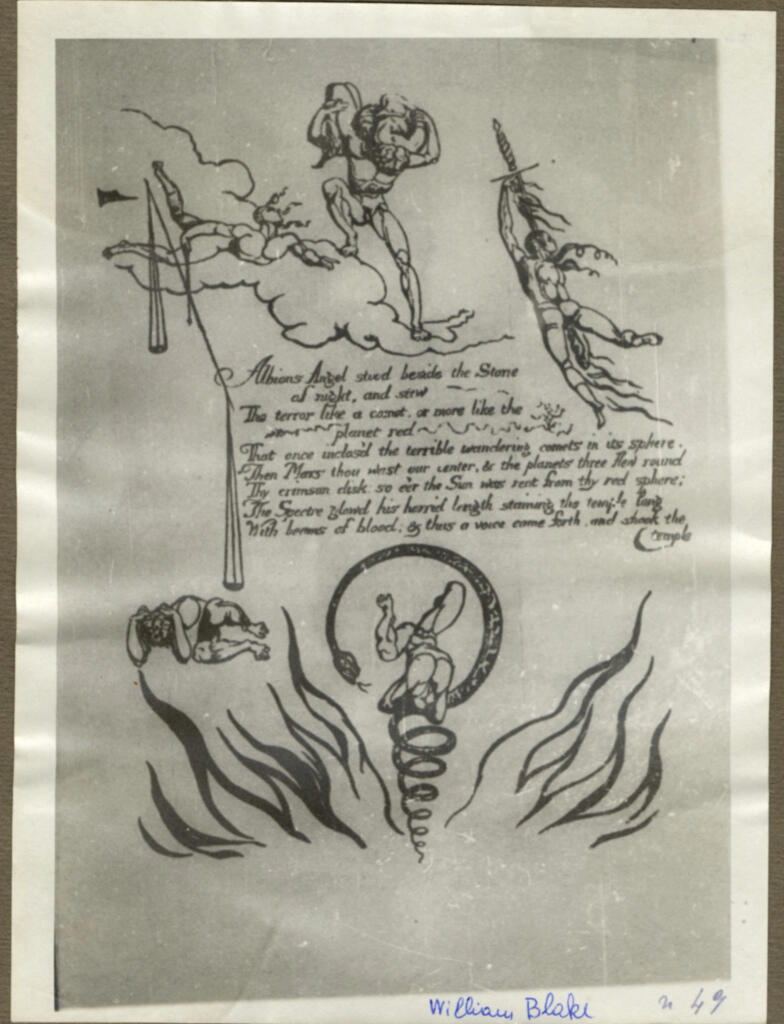 Albions Angel stood beside the Stone
of night, and saw
The terror like a comet, or more like the
planet red
That once inclos'd the terrible wandering comets in its sphere.
Then Mars thou wast our center, & the planets three flew round
Thy crimson disk; so e'er the Sun was rent from thy red sphere;
The Spectre glowd his horrid length staining the temple long
With beams of blood; & thus a voice came forth, and shook the
temple
William Blake n 49